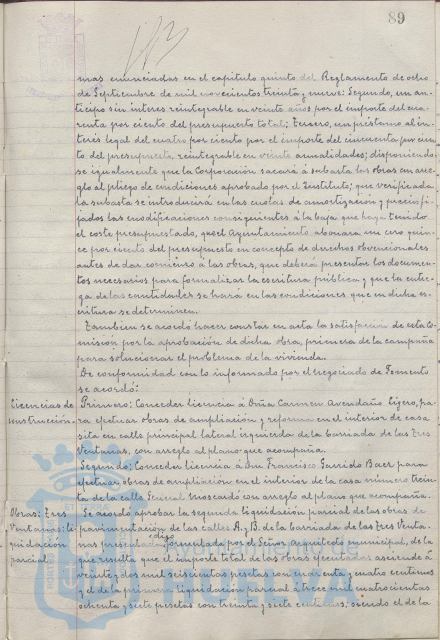 89
mas enunciadas en el capitulo quinto del Reglamento de ocho
de Septiembre de mil novecientos treinta y nueve: Segundo, un an-
ticipo sin interes reintegrable en veinte años por el importe del cua-
renta por ciento del presupuesto total; Tercero, un préstamo al in-
terés legal del cuatro por ciento por el importe del cincuenta por cien-
to del presupuesto, reintegrable en veinte anualidades; disponiendo
se igualmente que la Corporación sacará á subasta las obras con arre-
glo al pliego de condiciones aprobado por el Instituto; que verificada
la subasta se introducirá en las cuotas de amortización y precio fi-
jados las modificaciones consiguientes á la baja que haya tenido
el coste presupuestado, que el Ayuntamiento abonará un cero quin-
ce por ciento del presupuesto en concepto de derechos obvencionales
antes de dar comienzo á las obras, que deberá presentar los documen-
tos necesarios para formalizar la escritura pública y que la entre-
ga de las cantidades se hará en las condiciones que en dicha es-
critura se determinen.
Tambien se acordó hacer constar en acta la satisfacción de esta Co-
misión por la aprobación de dicha obra, primera de la campaña
para solucionar el problema de la vivienda.
De conformidad con lo informado por el negociado de Fomento
se acordó:
Licencias de
construcción.
Primero: Conceder licencia á Doña Carmen Avendaño Ligero, pa-
ra efectuar obras de ampliación y reforma en el interior de casa
sita en calle principal lateral izquierda de la barriada de las Tres
Ventanas, con arreglo al plano que acompaña.
Segundo: Conceder licencia a Don Francisco Garrido Baer para
efectuar obras de ampliación en el interior de la casa número trein-
ta de la calle General Moscardó con arreglo al plano que acompaña.
Obras: Tres
Ventanas: li-
quidación
parcial.
Se acordó aprobar la segunda liquidación parcial de las obras de
pavimentación de las calles A. y B. de la barriada de las Tres Venta-
nas formulada por el Señor arquitecto municipal, de la
que resulta que el importe total de las obras ejecutadas asciende á
veinte y dos mil seiscientas pesetas con cuarenta y cuatro centimos
y el de la primera liquidación parcial á trece mil cuatrocientas
ochenta y siete pesetas con treinta y siete centimos, siendo el de la